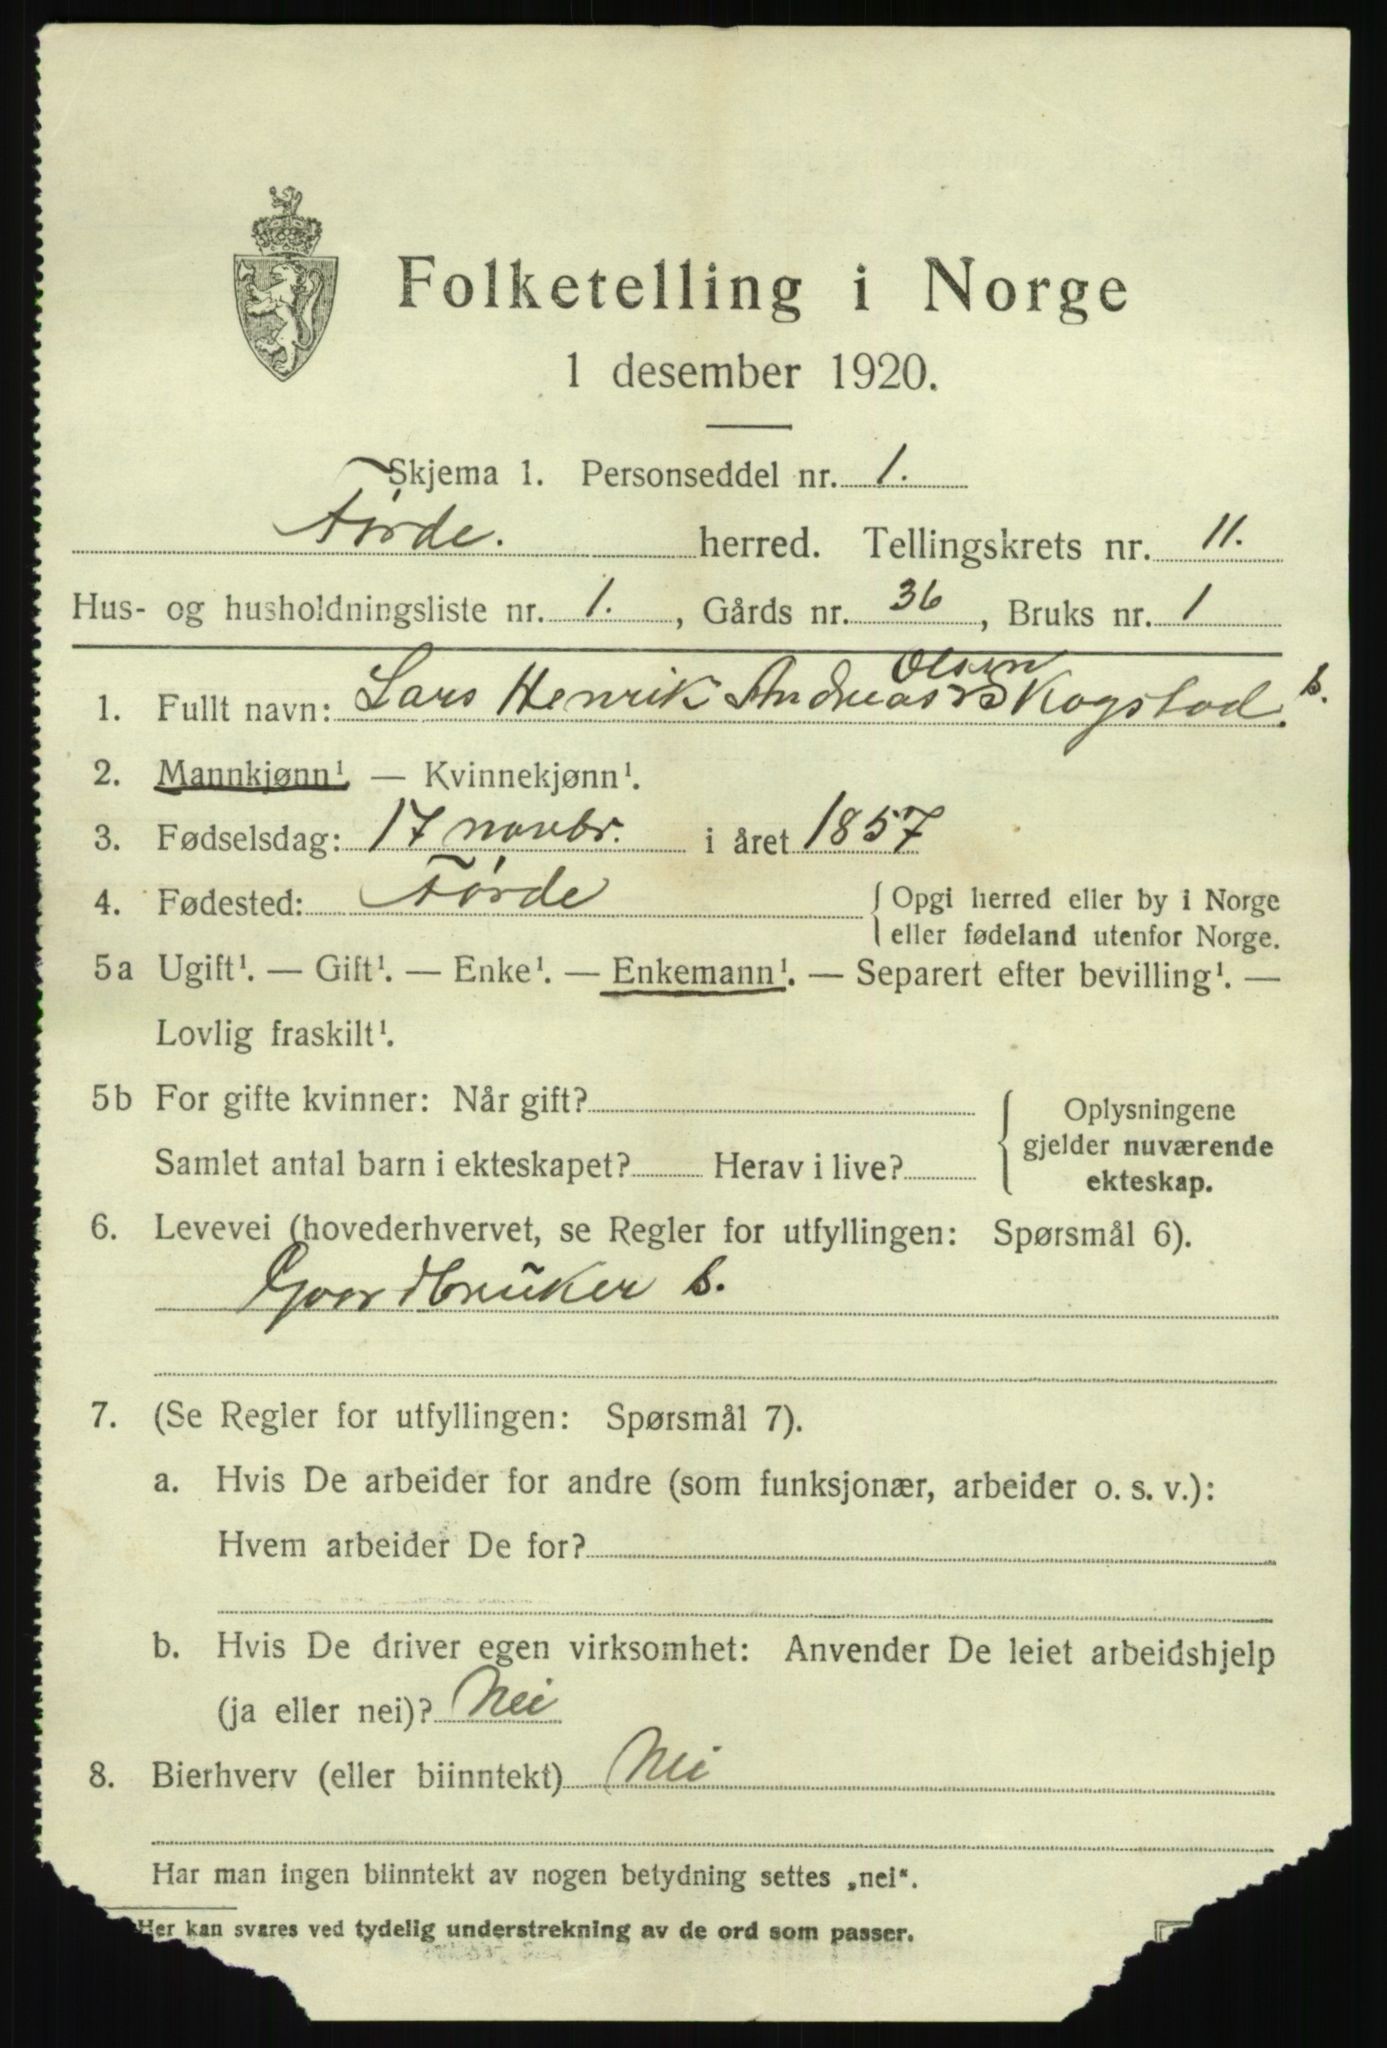 Folketelling i Norge
1 desember 1920.
Skjema 1. Personseddel nr. 1.
Førde. herred. Tellingskrets nr. 11.
Hus- og husholdningsliste nr. 1. , Gårds nr. 36 , Bruks nr. 1
Olsen
1. Fullt navn: Lars Henrik Andreas Skogstad. b.
2. Mannkjønn¹. — Kvinnekjønn¹.
3. Fødselsdag: 17 novbr. i året 1857
4. Fødested: Førde { Opgi herred eller by i Norge
eller fødeland utenfor Norge.
5a Ugift¹. — Gift¹. — Enke¹. — Enkemann¹. — Separert efter bevilling¹. —
Lovlig fraskilt¹.
5b For gifte kvinner: Når gift?
Samlet antal barn i ekteskapet? Herav i live?
{ Oplysningene
gjelder nuværende
ekteskap.
6. Levevei (hovederhvervet, se Regler for utfyllingen: Spørsmål 6).
Goordbruker b.
7. (Se Regler for utfyllingen: Spørsmål 7).
a. Hvis De arbeider for andre (som funksjonær, arbeider o. s. v.):
Hvem arbeider De for?
b. Hvis De driver egen virksomhet: Anvender De leiet arbeidshjelp
(ja eller nei)? Nei
8. Bierhverv (eller biinntekt) Nei
Har man ingen biinntekt av nogen betydning settes „nei“.
Her kan svares ved tydelig understrekning av de ord som passer.